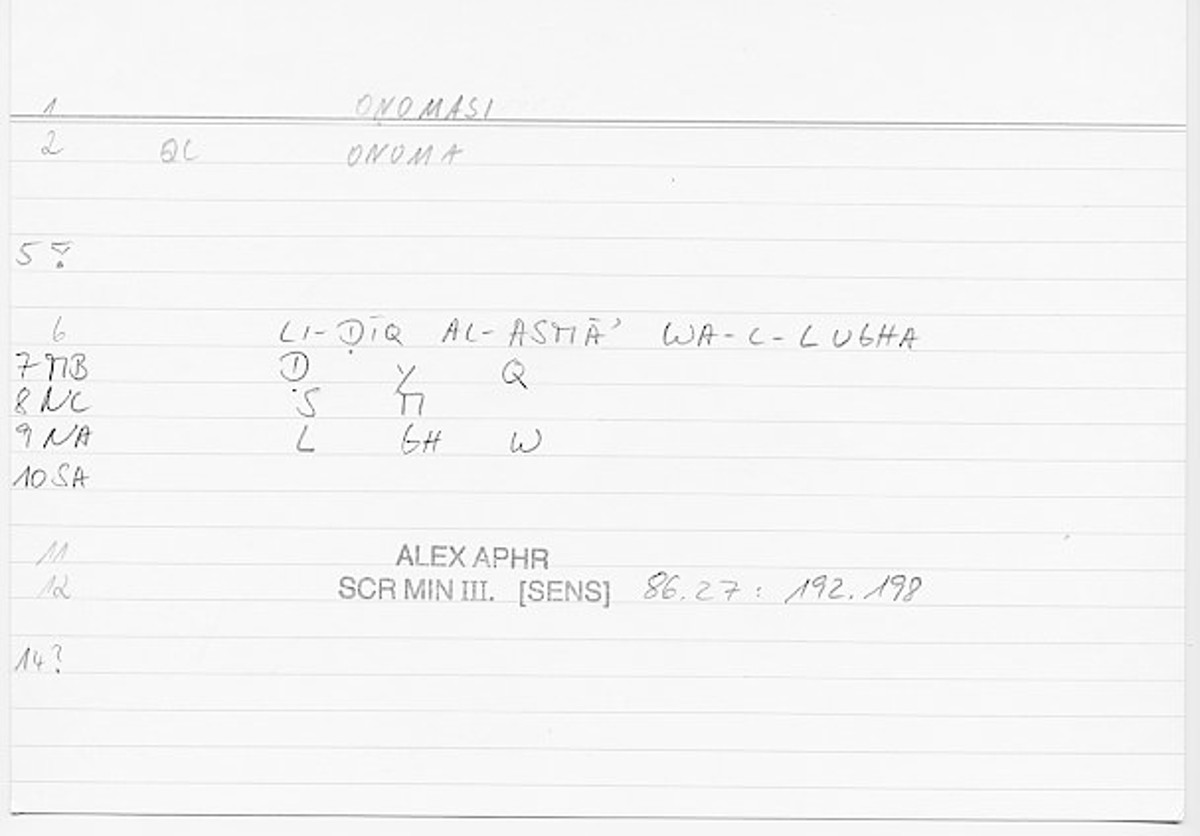 1 ONOMASI
2 QC ONOMA
5 ?
6 LI-ḌĪQ AL-ASMĀʾ WA-L-LUGHA
7 MB Ḍ Y Q
8 NC S M
9 NA L GH W
10 SA
11 ALEX APHR
12 SCR MIN III. [SENS] 86.27: 192.198
14?